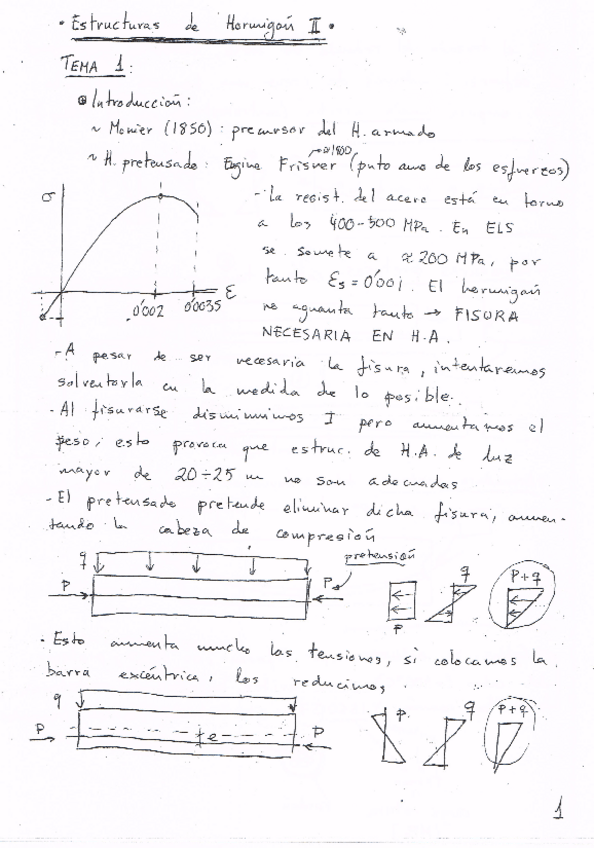 · Estructuras de Hormigón II ·
TEMA 1:
Introducción:
~ Monier (1850): precursor del H. armado
≈1900
~ H. pretensado: Eugine Frisner (puto amo de los esfuerzos)
- La resist. del acero está en torno
a los 400-500 MPa. En ELS
se somete a ≈ 200 MPa, por
tanto Es = 0'001. El hormigón
no aguanta tanto → FISURA
NECESARIA EN H.A.
σ
ε
0'002
0'0035
- A pesar de ser necesaria la fisura, intentaremos
solventarla en la medida de lo posible.
- Al fisurarse disminuimos I pero aumentamos el
peso, esto provoca que estruc. de H.A. de luz
mayor de 20÷25 m no son adecuadas
- El pretensado pretende eliminar dicha fisura, aumen-
tando la cabeza de compresión
q
P
P
pretensión
P
q
P+q
- Esto aumenta mucho las tensiones, si colocamos la
barra excéntrica, las reducimos.
q
P
e
P
P
q
P+q
1